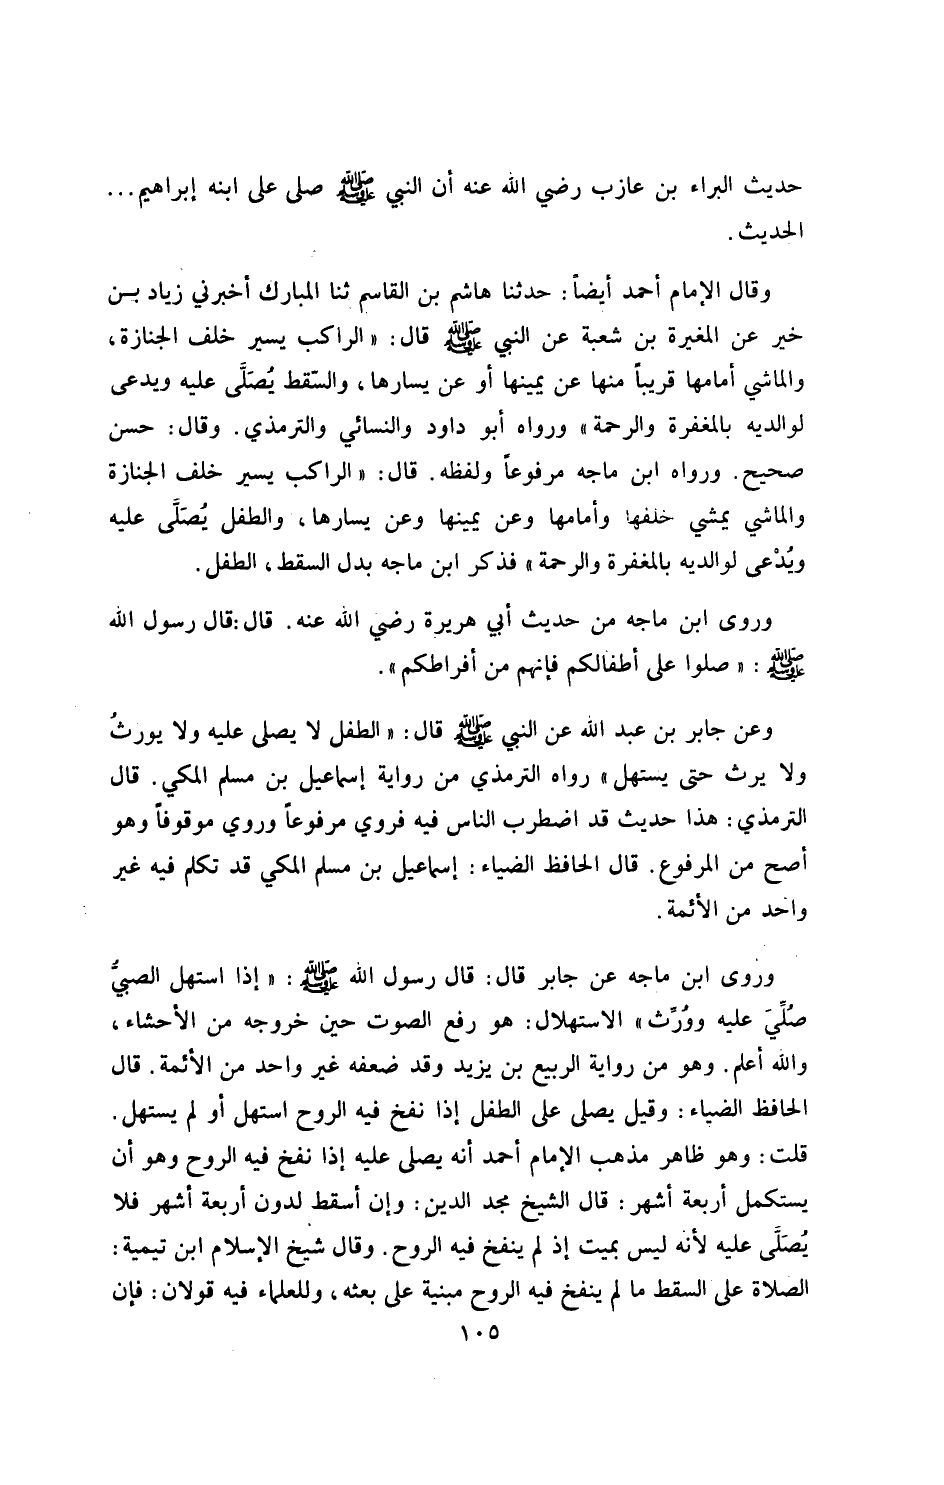 حديث البراء بن عازب رضي الله عنه أن النبي ﷺ صلى على ابنه إبراهيم...
الحديث.
وقال الإمام أحمد أيضاً: حدثنا هاشم بن القاسم ثنا المبارك أخبرني زياد بـن
خير عن المغيرة بن شعبة عن النبي ﷺ قال: «الراكب يسير خلف الجنازة،
والماشي أمامها قريباً منها عن يمينها أو عن يسارها، والسّقط يُصَلَّى عليه ويدعى
لوالديه بالمغفرة والرحمة» ورواه أبو داود والنسائي والترمذي. وقال: حسن
صحيح. ورواه ابن ماجه مرفوعاً ولفظه. قال: «الراكب يسير خلف الجنازة
والماشي يمشي خلفها وأمامها وعن يمينها وعن يسارها، والطفل يُصَلَّى عليه
ويُدْعى لوالديه بالمغفرة والرحمة» فذكر ابن ماجه بدل السقط، الطفل.
وروى ابن ماجه من حديث أبي هريرة رضي الله عنه. قال:قال رسول الله
ﷺ: «صلوا على أطفالكم فإنهم من أفراطكم».
وعن جابر بن عبد الله عن النبي ﷺ قال: «الطفل لا يصلى عليه ولا يورثُ
ولا يرث حتى يستهل» رواه الترمذي من رواية إسماعيل بن مسلم المكي. قال
الترمذي: هذا حديث قد اضطرب الناس فيه فروي مرفوعاً وروي موقوفاً وهو
أصح من المرفوع. قال الحافظ الضياء: إسماعيل بن مسلم المكي قد تكلم فيه غير
واحد من الأئمة.
وروى ابن ماجه عن جابر قال: قال رسول الله ﷺ: «إذا استهل الصبيُّ
صُلِّيَ عليه ووُرِّث» الاستهلال: هو رفع الصوت حين خروجه من الأحشاء،
والله أعلم. وهو من رواية الربيع بن يزيد وقد ضعفه غير واحد من الأئمة. قال
الحافظ الضياء: وقيل يصلى على الطفل إذا نفخ فيه الروح استهل أو لم يستهل.
قلت: وهو ظاهر مذهب الإمام أحمد أنه يصلى عليه إذا نفخ فيه الروح وهو أن
يستكمل أربعة أشهر: قال الشيخ مجد الدين: وإن أسقط لدون أربعة أشهر فلا
يُصَلَّى عليه لأنه ليس بميت إذ لم ينفخ فيه الروح. وقال شيخ الإسلام ابن تيمية:
الصلاة على السقط ما لم ينفخ فيه الروح مبنية على بعثه، وللعلماء فيه قولان: فإن
١٠٥